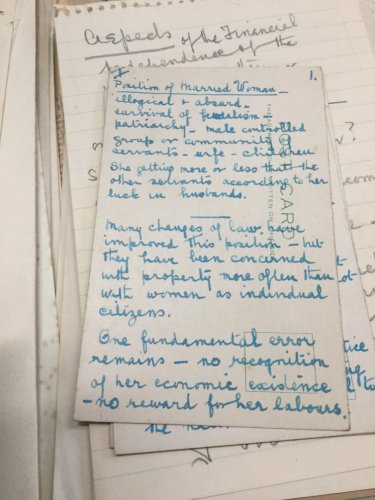 Aspects of the Financial
Independence of the
I 1.
Position of Married Woman -
illogical & absurd -
survival of feudalism &
patriarchy - male controlled
group or community
servants - wife - children
She getting more or less that the
other servants according to her
luck in husbands.
Many changes of law have
improved this position - but
they have been concerned
with property more often than
with women as individual
citizens.
One fundamental error
remains - no recognition
of her economic existence
- no reward for her labours.
POST CARD